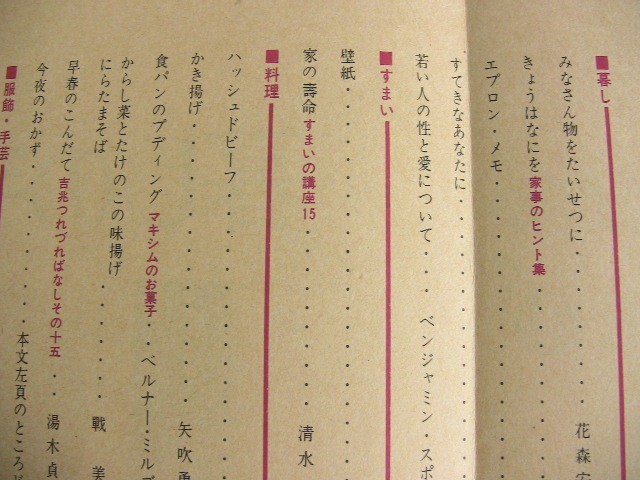 ■暮し
みなさん物をたいせつに・・・・・・・・花森安
きょうはなにを 家事のヒント集・・・・・・・・
エプロン・メモ・・・・・・・・・・・・・・
すてきなあなたに・・・・・・・・・・・・・・
若い人の性と愛について・・・ベンジャミン・スポ
■すまい
壁紙・・・・・・・・・・・・・・・・・・
家の壽命 すまいの講座15・・・・・・・清水
■料理
ハッシュドビーフ・・・・・・・・・・・・・
かき揚げ・・・・・・・・・・・・・矢吹勇
食パンのプディング マキシムのお菓子・・ベルナー・ミルブ
からし菜とたけのこの味揚げ
にらたまそば・・・・・・・・・・戰美
早春のこんだて 吉兆つれづればなしその十五・・湯木貞
今夜のおかず・・・・・・・・本文左頁のところど
■服飾・手芸